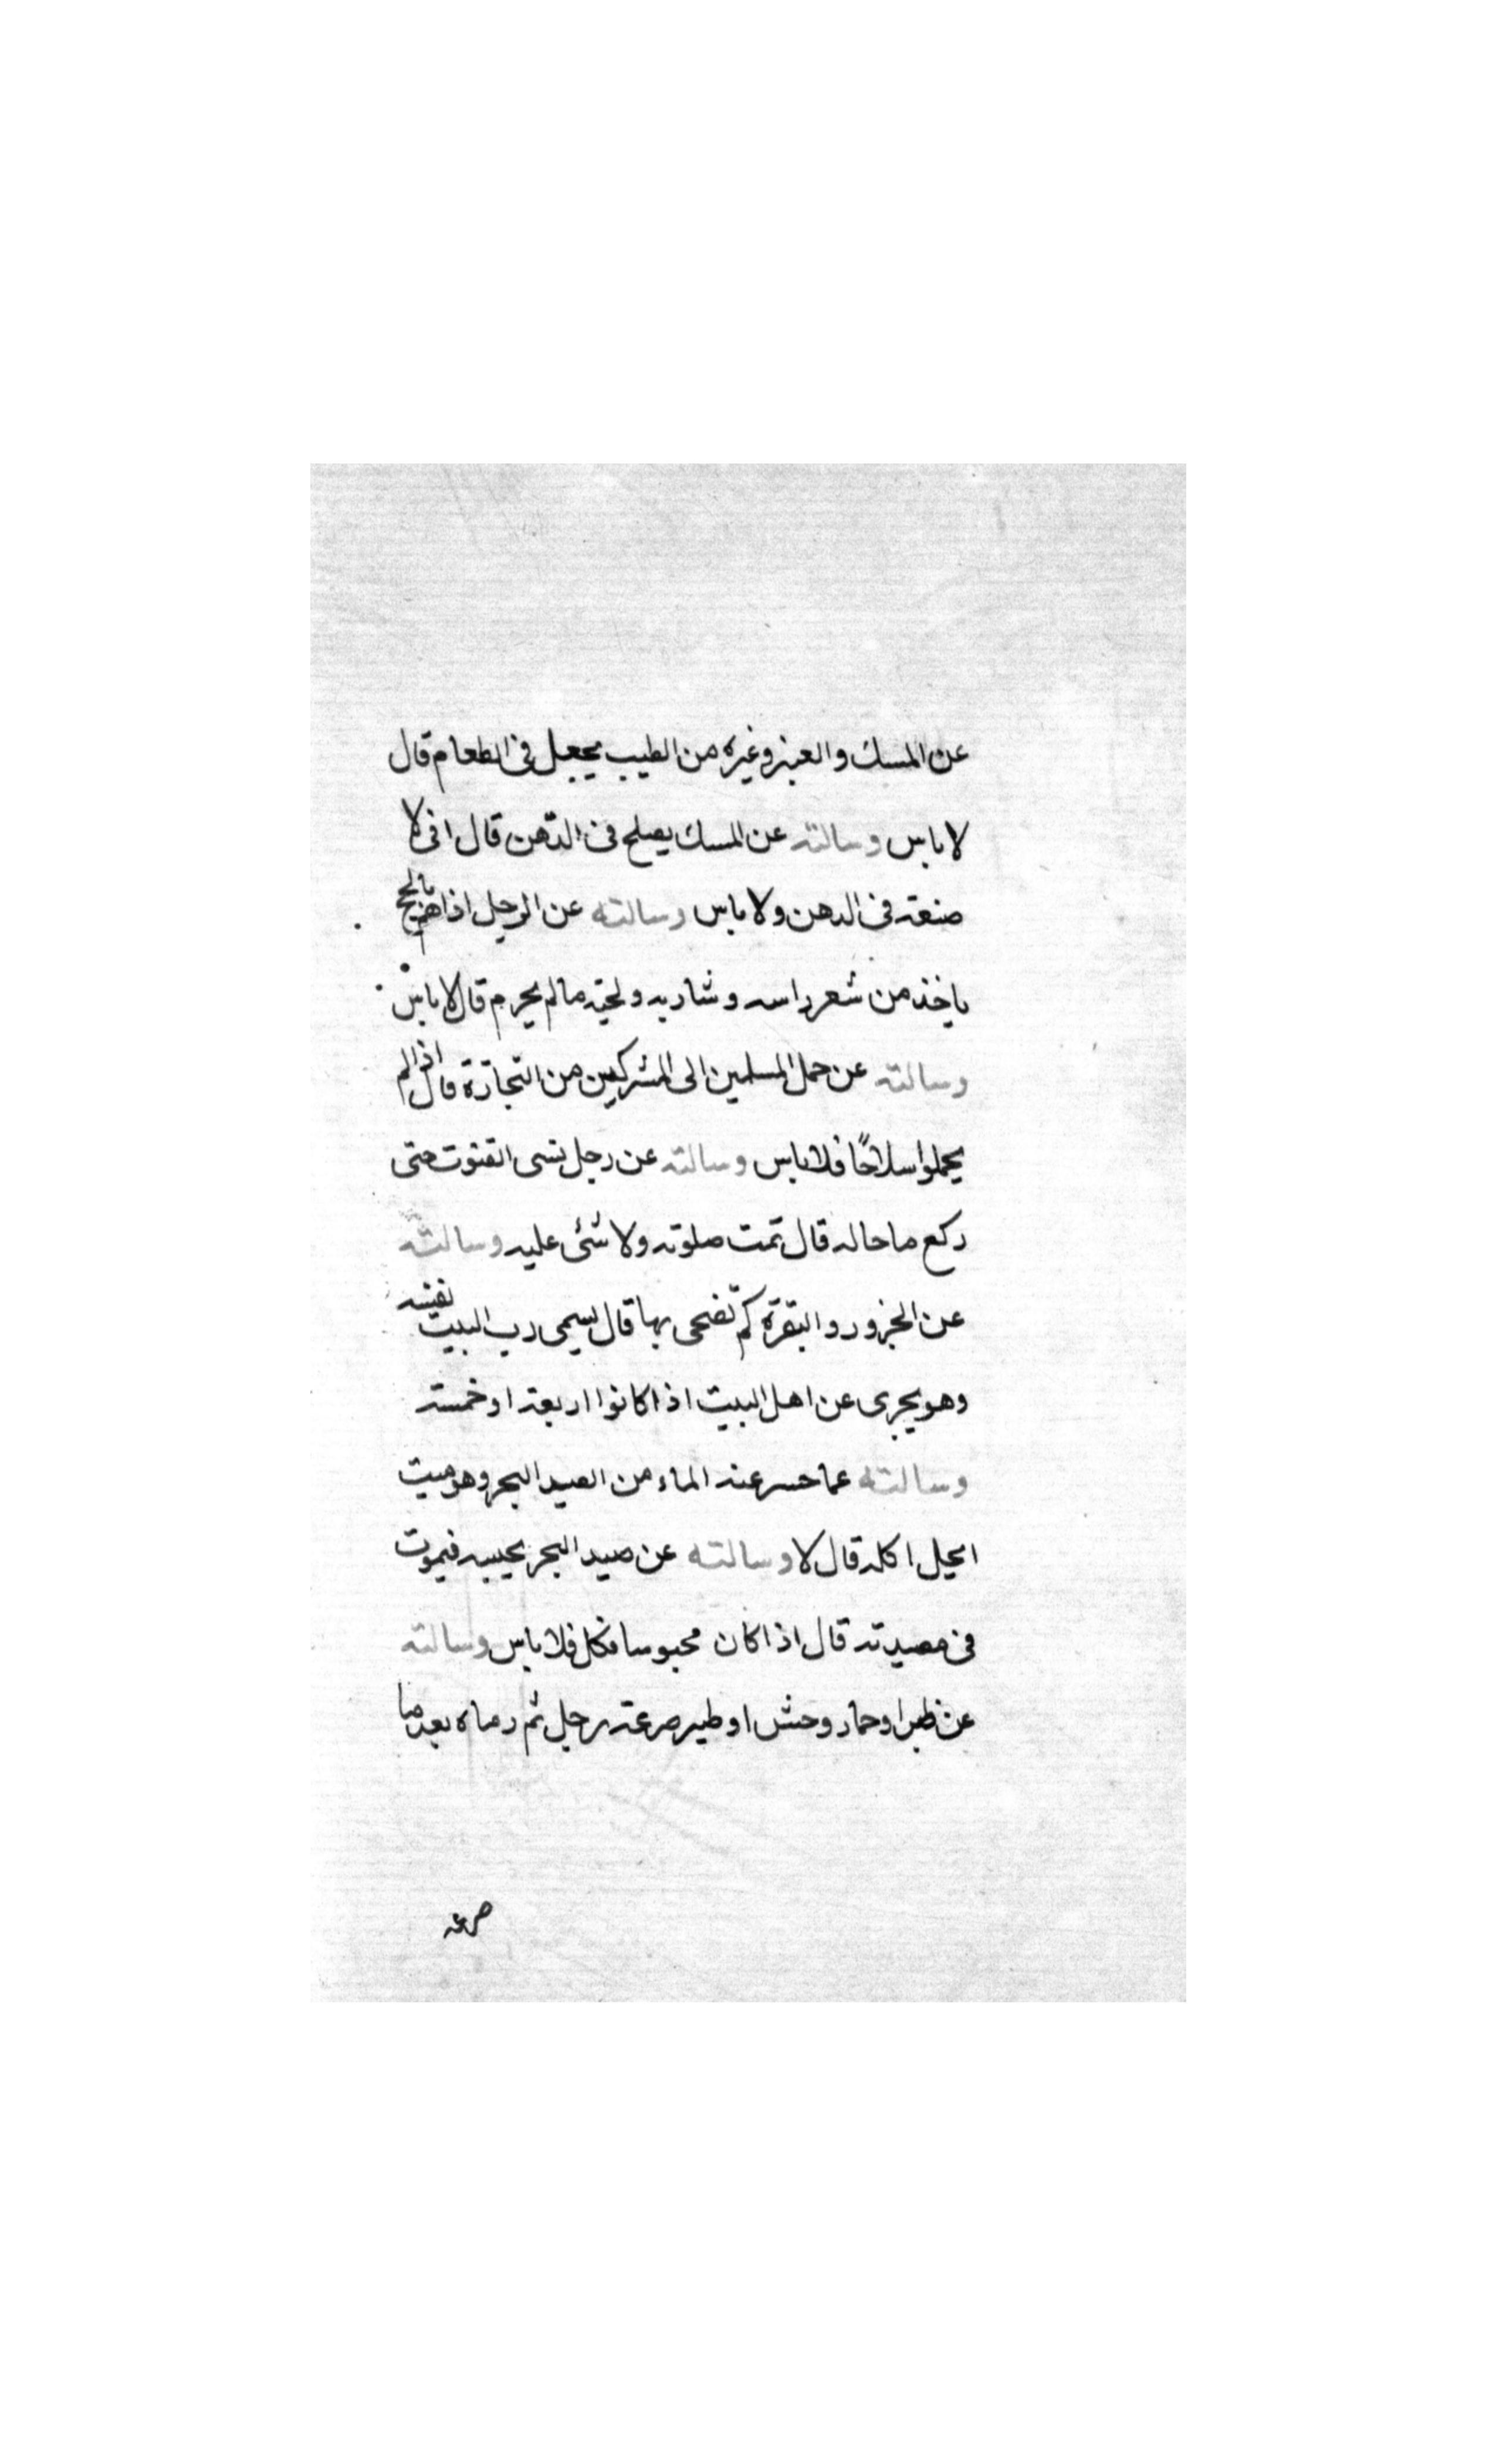 عن المسك والعنبر وغيره من الطيب يجعل فى الطعام قال
لا باس وسالته عن المسك يصلح فى الدّهن قال انى لا
صنعته فى الدهن ولا باس وسالته عن الرجل اذا هم بالحج
ياخذ من شعر راسه وشاربه ولحيته ما لم يحرم قال لا باس
وسالته عن حمل المسلمين الى المشركين من التجارة قال اذا لم
يحملوا سلاحًا فلا باس وسالته عن رجل نسى القنوت حتى
ركع ما حاله قال تمت صلوته ولا شئ عليه وسالته
عن الجزور والبقرة كم تضحى بها قال يسمى رب البيت نفسه
وهو يجزى عن اهل البيت اذا كانوا اربعة او خمسة
وسالته عما حسر عنه الماء من الصيد البحر وهو ميت
ايحل اكله قال لا وسالته عن صيد البحر يحبسه فيموت
فى مصيدته قال اذا كان محبوسا فكل فلا باس وسالته
عن ظبى او حمار وحش او طير صرعته رجل ثم رماه بعد ما
صرعه